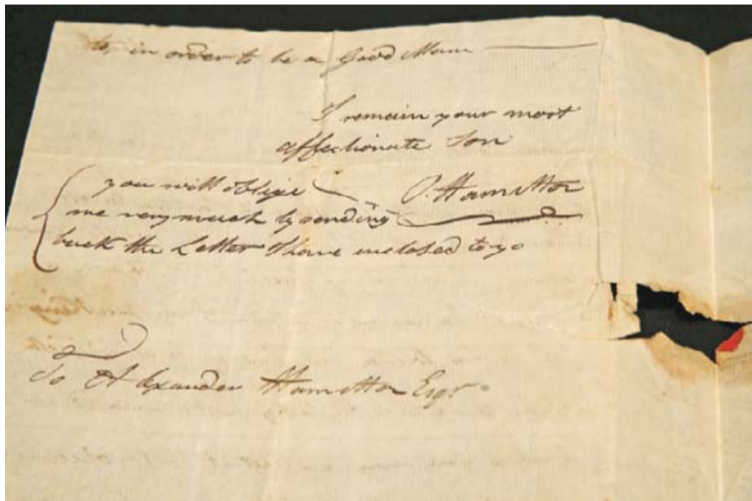 to, in order to be a Good Man
I remain your most
affectionate Son
P. Hamilton
you will oblige
me very much by sending
back the Letter I have enclosed to yo
To Alexander Hamilton Esqr